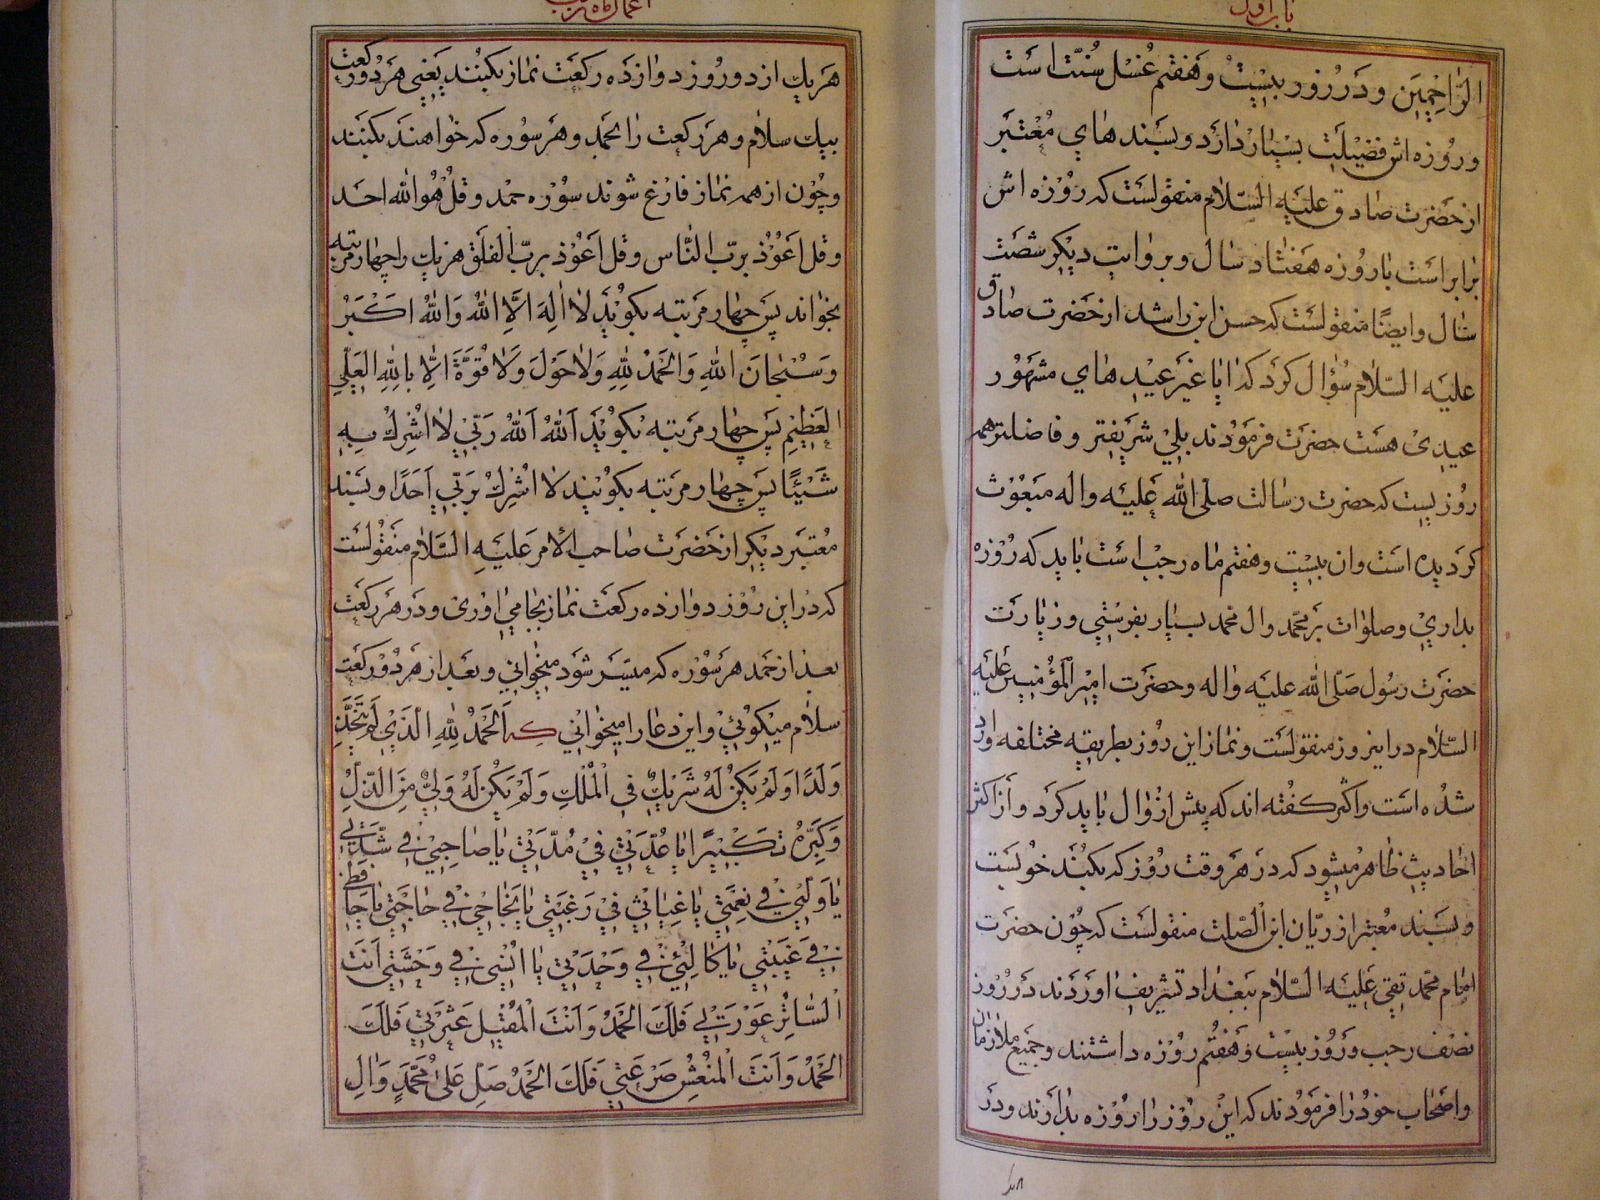 باب اول
الرّاحِمِين و در روز بيست و هفتم غسل سنّت است
و روزه اش فضيلت بسيار دارد و بسند هاي معتبر
از حضرت صادق عليه السّلام منقولست كه روزه اش
برابر است با روزه هفتاد سال و بروايت ديكر شصت
سال و ايضًا منقولست كه حسن ابن راشد از حضرت صادق
عليه السّلام سؤال كرد كه ايا غير عيد هاي مشهور
عيدى هست حضرت فرمودند بلي شريفتر و فاضلتر همه
روزيست كه حضرت رسالت صلّى الله عليه واله مبعوث
كرديده است وان بيست و هفتم ماه رجب است بايد كه روزه
بداري و صلوات بر محمّد وال محمد بسيار بفرستي و زيارت
حضرت رسول صلّى الله عليه واله و حضرت امير المؤمنين عليه
السّلام در اين روز منقولست و نماز اين روز بطريقه مختلفه وارد
شده است و اكثر كفته اند كه پيش از زوال بايد كرد و از اكثر
احاديث ظاهر ميشود كه در هر وقت روز كه بكنند خوبست
و بسند معتبر از ريّان ابن الصّلت منقولست كه چون حضرت
امام محمّد تقي عليه السّلام ببغداد تشريف اوردند در روز
نصف رجب و روز بيست و هفتم روزه داشتند و جميع ملازمان
و اصحاب خود را فرمودند كه اين روز را روزه بدارند و در
اعمال ماه رجب
هر يك از دو روز دوازده ركعت نماز بكنند يعني هر دو ركعت
بيك سلام و هر ركعت را بحمد و هر سوره كه خواهند بكنند
و چون از همه نماز فارغ شوند سوره حمد و قل هو الله احد
و قل اعوذ بربّ النّاس و قل اعوذ بربّ الفلق هر يك را چهار مرتبه
بخواند پس چهار مرتبه بكويد لا اله الّا الله والله اكبر
و سبحان الله والحمد لله ولا حول ولا قوّة الّا بالله العليّ
العظيم پس چهار مرتبه بكويد الله الله ربّي لا اشرك به
شيئًا پس چهار مرتبه بكويند لا اشرك بربّي احدًا و بسند
معتبر ديكر از حضرت صاحب الامر عليه السّلام منقولست
كه در اين روز دوازده ركعت نماز بجا مي اورى و در هر ركعت
بعد از حمد هر سوره كه ميسّر شود ميخواني و بعد از هر دو ركعت
سلام ميكوئي و اين دعا را ميخواني كه الحمد لله الّذي لم يتّخذ
ولدًا ولم يكن له شريك في الملك ولم يكن له وليّ من الذّلّ
وكبّره تكبيرًا يا عدّتي في مدّتي يا صاحبي في شدّتي
يا وليّي في نعمتي يا غياثي في رغبتي يا نجاحي في حاجتي يا حافظي
في غيبتي يا كالئي في وحدتي يا انسي في وحشتي انت
السّاتر عورتي فلك الحمد وانت المقيل عثرتي فلك
الحمد وانت المنعش صرعتي فلك الحمد صلّ على محمّد وال